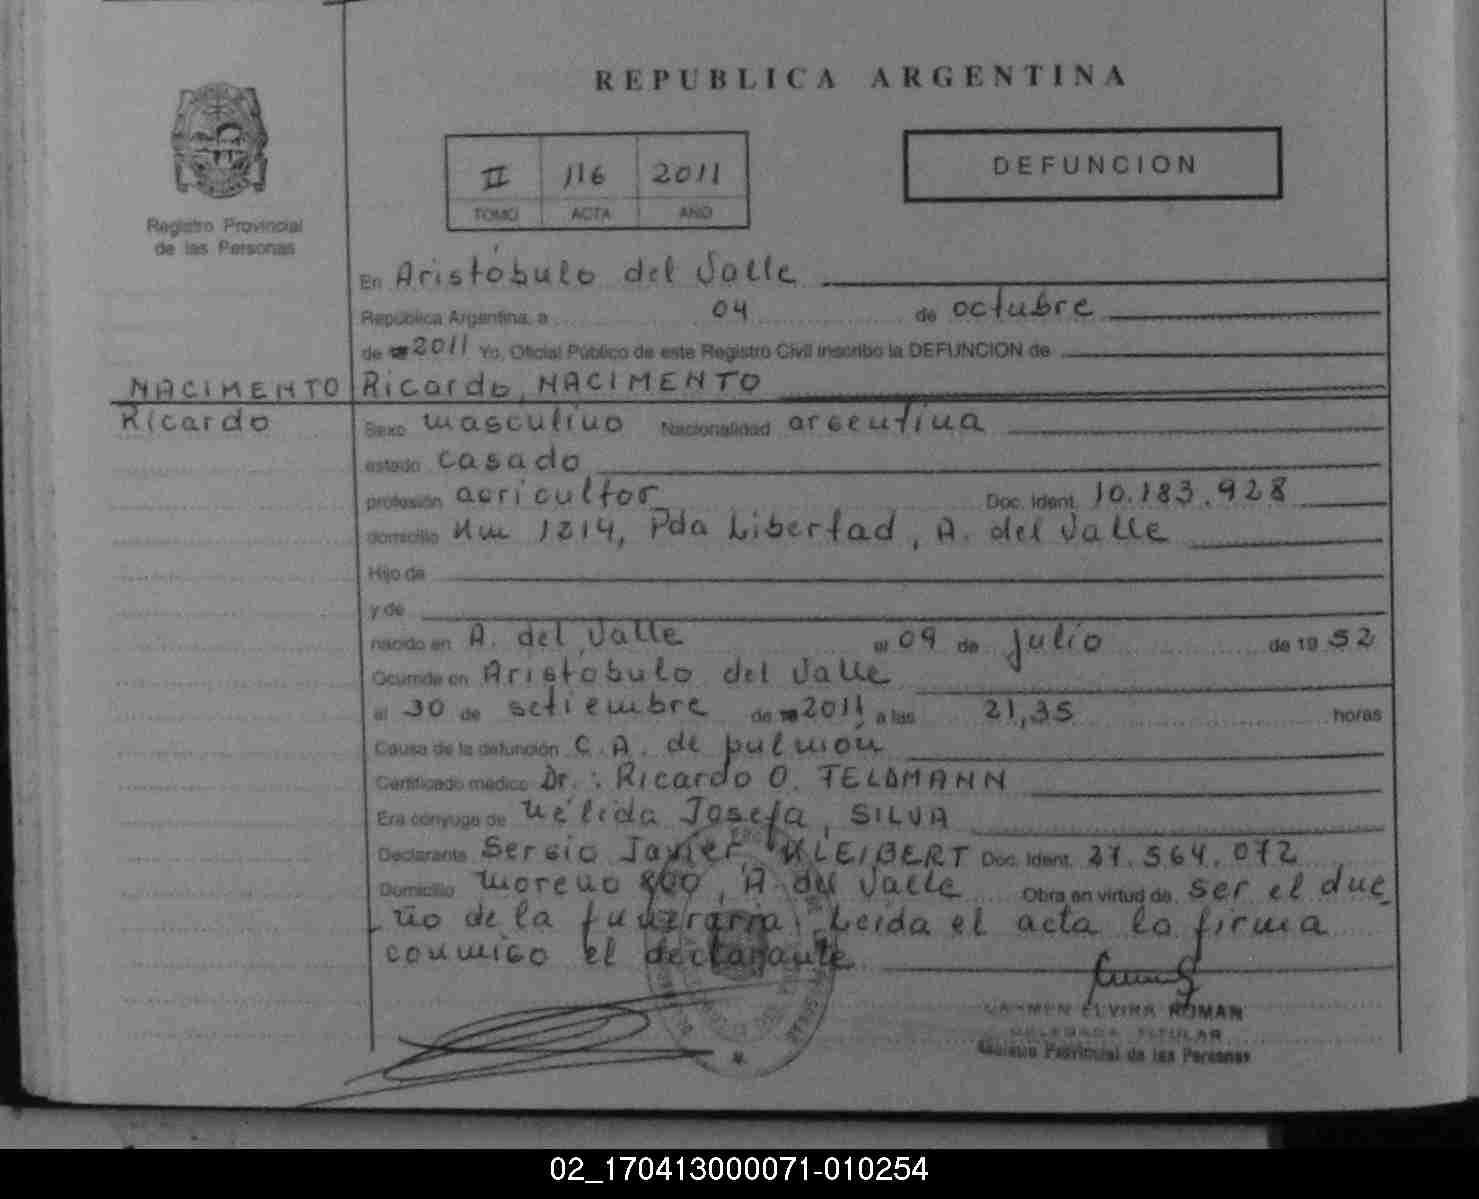 REPUBLICA ARGENTINA
II 116 2011
TOMO ACTA AÑO
DEFUNCION
Registro Provincial
de las Personas
En Aristóbulo del Valle
República Argentina, a 04 de octubre
de 2011 Yo, Oficial Público de este Registro Civil inscribo la DEFUNCION de
NACIMENTO Ricardo, NACIMENTO
Ricardo
Sexo masculino Nacionalidad argentina
estado casado
profesión agricultor Doc. Ident. 10.183.928
domicilio Km 1214, Pda Libertad, A. del Valle
Hijo de
y de
nacido en A. del Valle el 09 de julio de 19 52
Ocurrida en Aristobulo del Valle
el 30 de setiembre de 2011 a las 21,35 horas
Causa de la defunción C.A. de pulmón
Certificado médico Dr.: Ricardo O. FELDMANN
Era cónyuge de Nélida Josefa, SILVA
Declarante Sergio Javier, KLEIBERT Doc. Ident. 21.564.072
Domicilio Moreno 800, A. del Valle Obra en virtud de ser el due
ño de la funeraria. Leida el acta la firma
conmigo el declarante
CARMEN ELVIRA ROMAN
DELEGADA TITULAR
Registro Provincial de las Personas
02_170413000071-010254